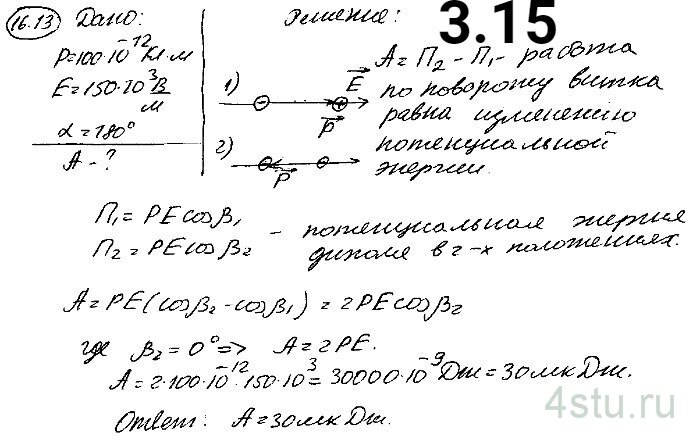 16.13 Дано:
P=100·10⁻¹² Кл·м
E=150·10³ В/м
α=180°
A-?
Решение:
3.15
1) E
P
2)
P
A=П₂-П₁- работа
по повороту витка
равна изменению
потенциальной
энергии.
П₁=PEcosβ₁
П₂=PEcosβ₂
- потенциальная энергия
диполя в 2-х положениях.
A=PE(cosβ₂-cosβ₁)=2PEcosβ₂
где β₂=0°=> A=2PE.
A=2·100·10⁻¹²·150·10³=30000·10⁻⁹Дж=30мкДж.
Ответ: A=30мкДж.
4stu.ru